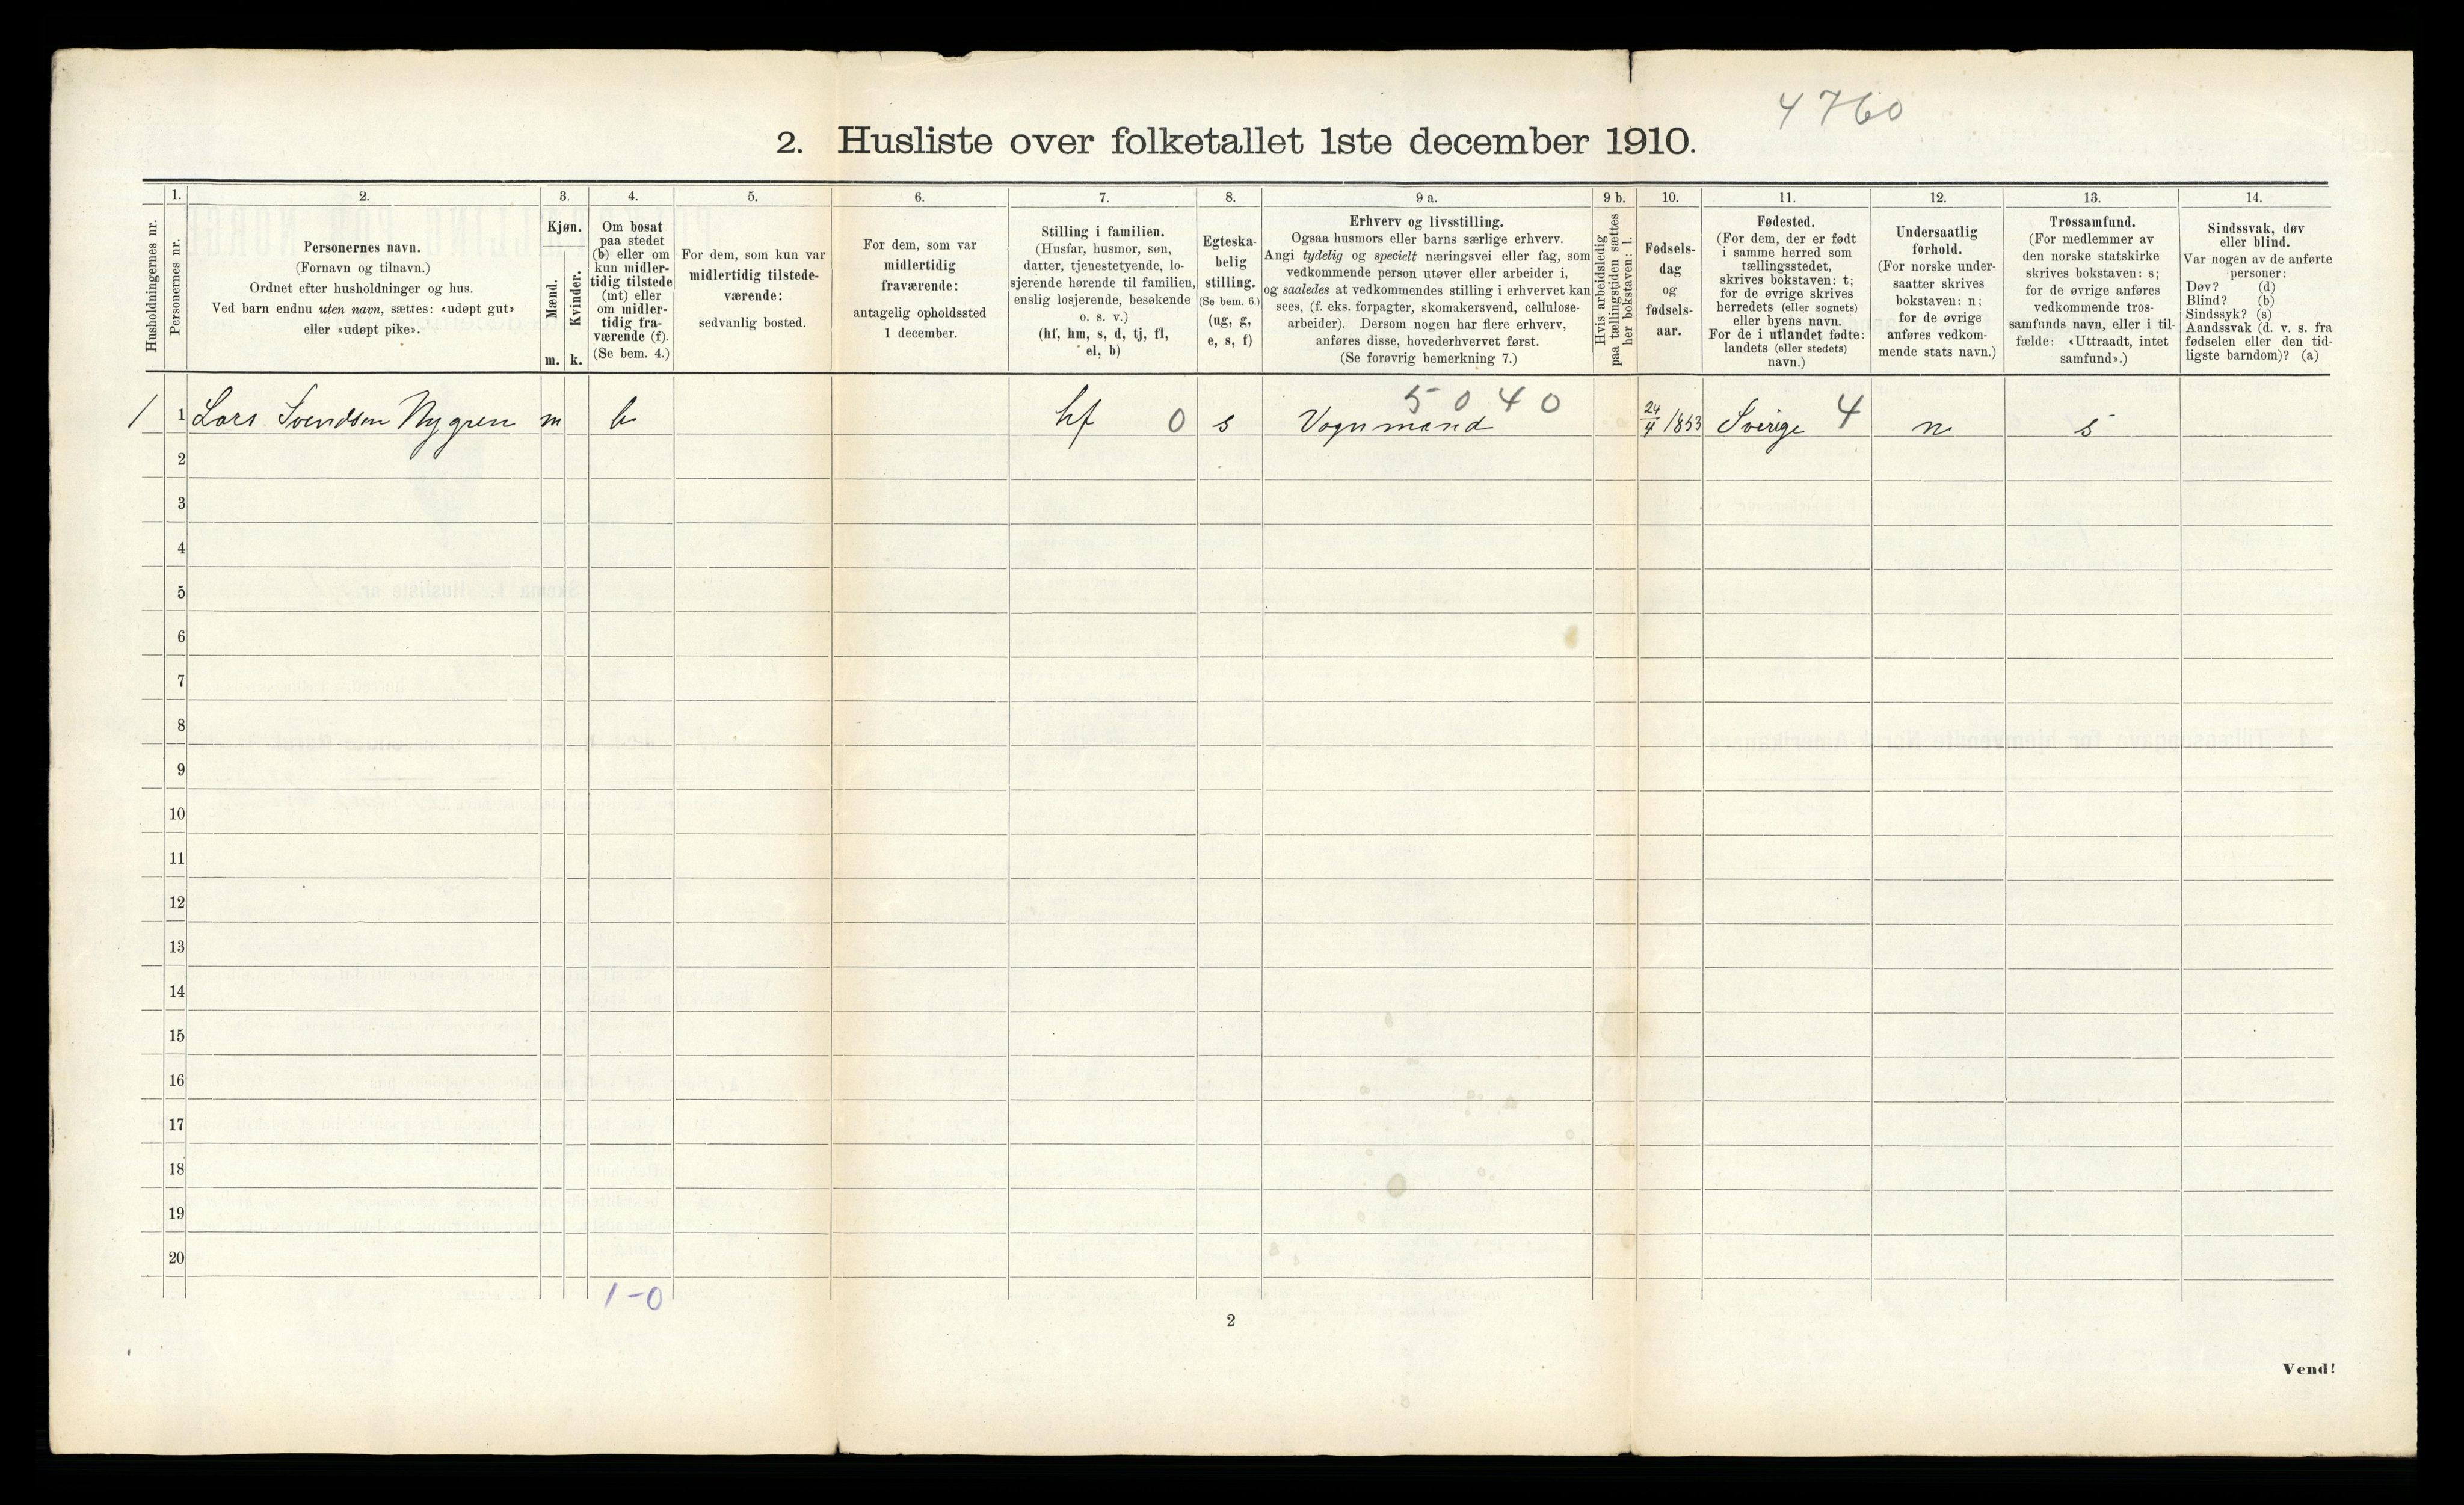 4760
2. Husliste over folketallet 1ste december 1910.
Husholdningernes nr.
1.
Personernes nr.
2.
Personernes navn.
(Fornavn og tilnavn.)
Ordnet efter husholdninger og hus.
Ved barn endnu uten navn, sættes: «udøpt gut»
eller «udøpt pike».
3.
Kjøn.
Mænd.
m.
Kvinder.
k.
4.
Om bosat
paa stedet
(b) eller om
kun midler-
tidig tilstede
(mt) eller
om midler-
tidig fra-
værende (f).
(Se bem. 4.)
5.
For dem, som kun var
midlertidig tilstede-
værende:
sedvanlig bosted.
6.
For dem, som var
midlertidig
fraværende:
antagelig opholdssted
1 december.
7.
Stilling i familien.
(Husfar, husmor, søn,
datter, tjenestetyende, lo-
sjerende hørende til familien,
enslig losjerende, besøkende
o. s. v.)
(hf, hm, s, d, tj, fl,
el, b)
8.
Egteska-
belig
stilling.
(Se bem. 6.)
(ug, g,
e, s, f)
9 a.
Erhverv og livsstilling.
Ogsaa husmors eller barns særlige erhverv.
Angi tydelig og specielt næringsvei eller fag, som
vedkommende person utøver eller arbeider i,
og saaledes at vedkommendes stilling i erhvervet kan
sees, (f. eks. forpagter, skomakersvend, cellulose-
arbeider). Dersom nogen har flere erhverv,
anføres disse, hovederhvervet først.
(Se forøvrig bemerkning 7.)
9 b.
Hvis arbeidsledig
paa tællingstiden sættes
her bokstaven: l.
10.
Fødsels-
dag
og
fødsels-
aar.
11.
Fødested.
(For dem, der er født
i samme herred som
tællingsstedet,
skrives bokstaven: t;
for de øvrige skrives
herredets (eller sognets)
eller byens navn.
For de i utlandet fødte:
landets (eller stedets)
navn.)
12.
Undersaatlig
forhold.
(For norske under-
saatter skrives
bokstaven: n;
for de øvrige
anføres vedkom-
mende stats navn.)
13.
Trossamfund.
(For medlemmer av
den norske statskirke
skrives bokstaven: s;
for de øvrige anføres
vedkommende tros-
samfunds navn, eller i til-
fælde: «Uttraadt, intet
samfund».)
14.
Sindssvak, døv
eller blind.
Var nogen av de anførte
personer:
Døv? (d)
Blind? (b)
Sindssyk? (s)
Aandssvak (d. v. s. fra
fødselen eller den tid-
ligste barndom)? (a)
5040
1 1 Lars Svendsen Nygren m b hf 0 s Vognmand 24/4 1853 Sverige 4 n s
2
3
4
5
6
7
8
9
10
11
12
13
14
15
16
17
18
19
20
1-0
2
Vend!